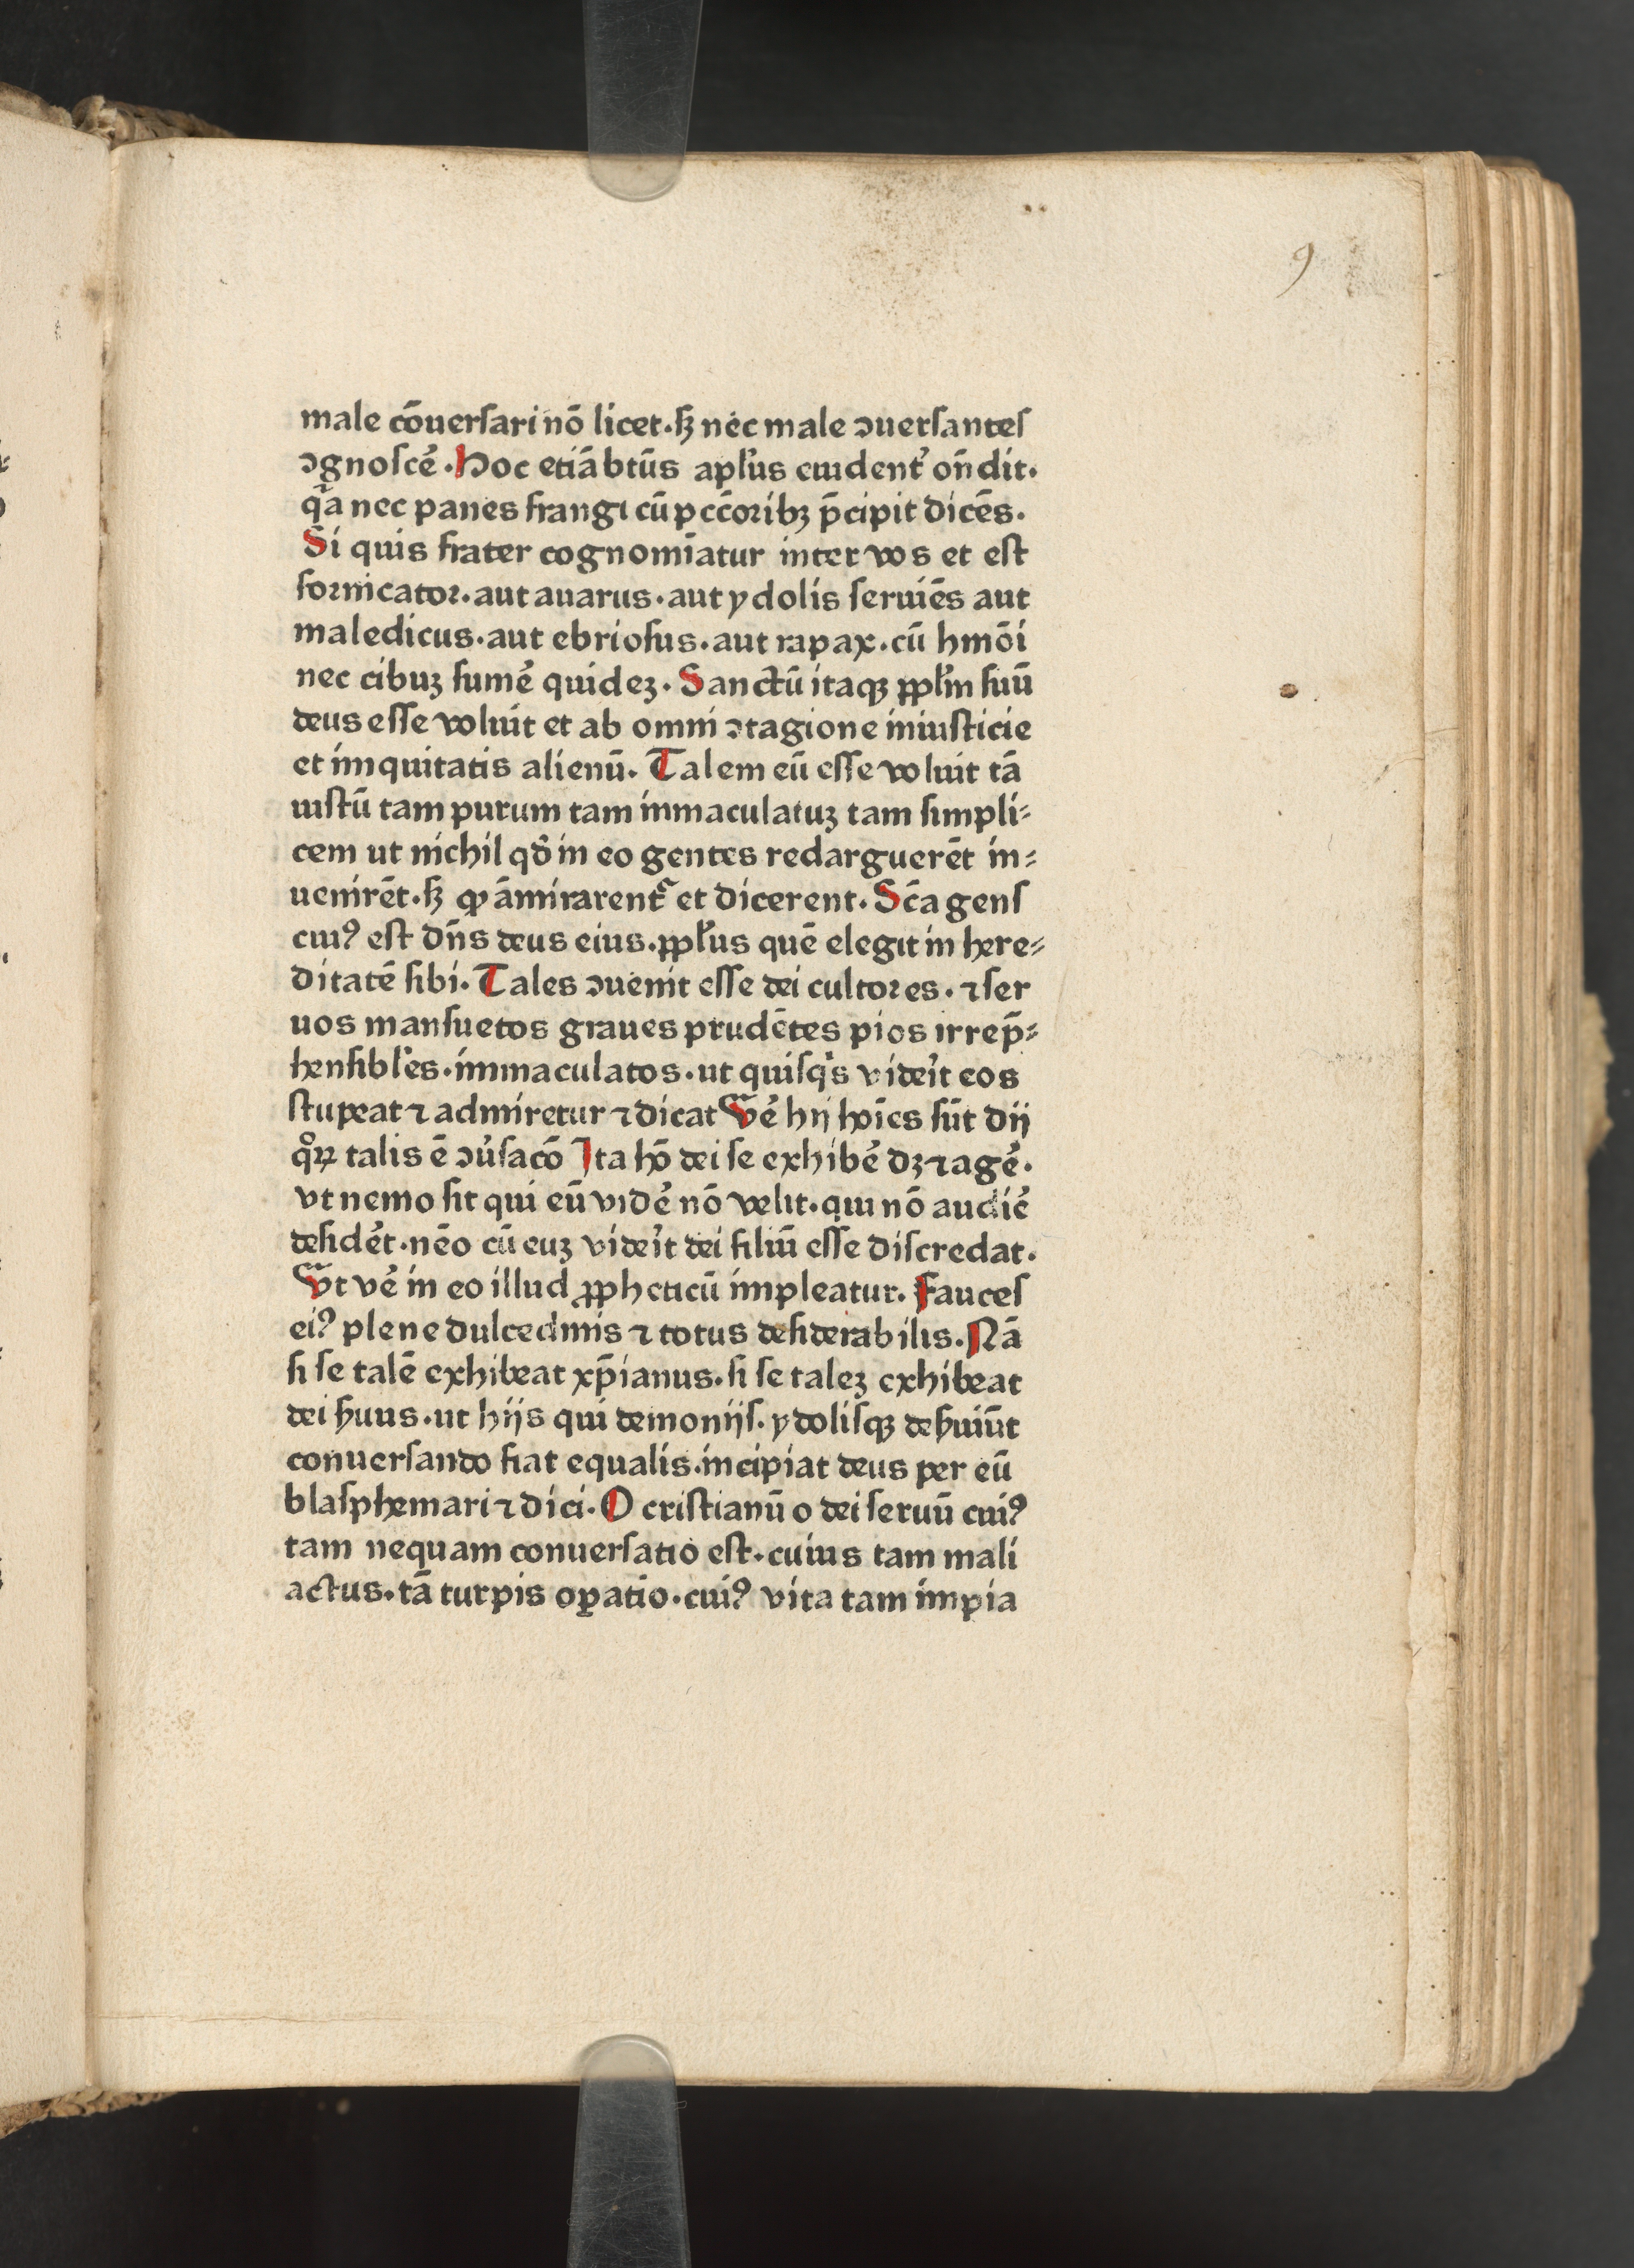 9
male cōuersari nō licet·sꝫ nec male ɔuersantes
ɔgnoscē̓·Hoc etiā btūs apl̓us euident̓ on̄dit·
qᷓa nec panes frangi cū pcc̄oribꝫ p̄cipit dicēs·
Si quis frater cognomīatur inter vos et est
fornicator·aut auarus·aut ydolis seruiēs aut
maledicus·aut ebriosus·aut rapax·cū hmōi
nec cibuꝫ sume̓ quideꝫ·Sanctū itaqꝫ ꝓpl̓m suū
deus esse voluit et ab omni ɔtagione iniusticie
et iniquitatis alienū·Talem eū esse voluit tā
iustū tam purum tam inmaculatuꝫ tam simpli⸗
cem ut nichil qd̓ in eo gentes redarguerēt in⸗
uenirēt·sꝫ qꝫ āmirarent᷑ et dicerent·Sc̄a gens
cuiꝰ est dn̄s deus eius·ꝓpl̓us quē elegit in here⸗
ditatē sibi·Tales ɔuenit esse dei cultores·⁊ ser
uos mansuetos graues prudētes pios irrep̄⸗
hensibl̓es·inmaculatos·ut quisqͥs vide̓it eos
stupeat ⁊ admiretur ⁊ dicat Ve̓ hij hoīes sūt dij
qͦꝝ talis ē ɔu̓sacō Ita hō dei se exhibe̓ dꝫ ⁊ age̓·
vt nemo sit qui eū vide̓ nō velit·qui nō audie̓
deside̓t·nēo cū euꝫ vide̓it dei filiū esse discredat·
Vt ve̓ in eo illud ꝓpheticū impleatur·Fauces
eiꝰ plene dulcedinis ⁊ totus desiderabilis·Nā
si se talē exhibeat xp̄ianus·si se taleꝫ exhibeat
dei ẜuus·ut hijs qui demonijs·ydolisqꝫ deẜuiūt
conuersando fiat equalis·incipiat deus per eū
blasphemari ⁊ dici·O cristianū o dei seruū cuiꝰ
tam nequam conuersatio est·cuius tam mali
actus·tā turpis oꝑatio·cuiꝰ vita tam impia